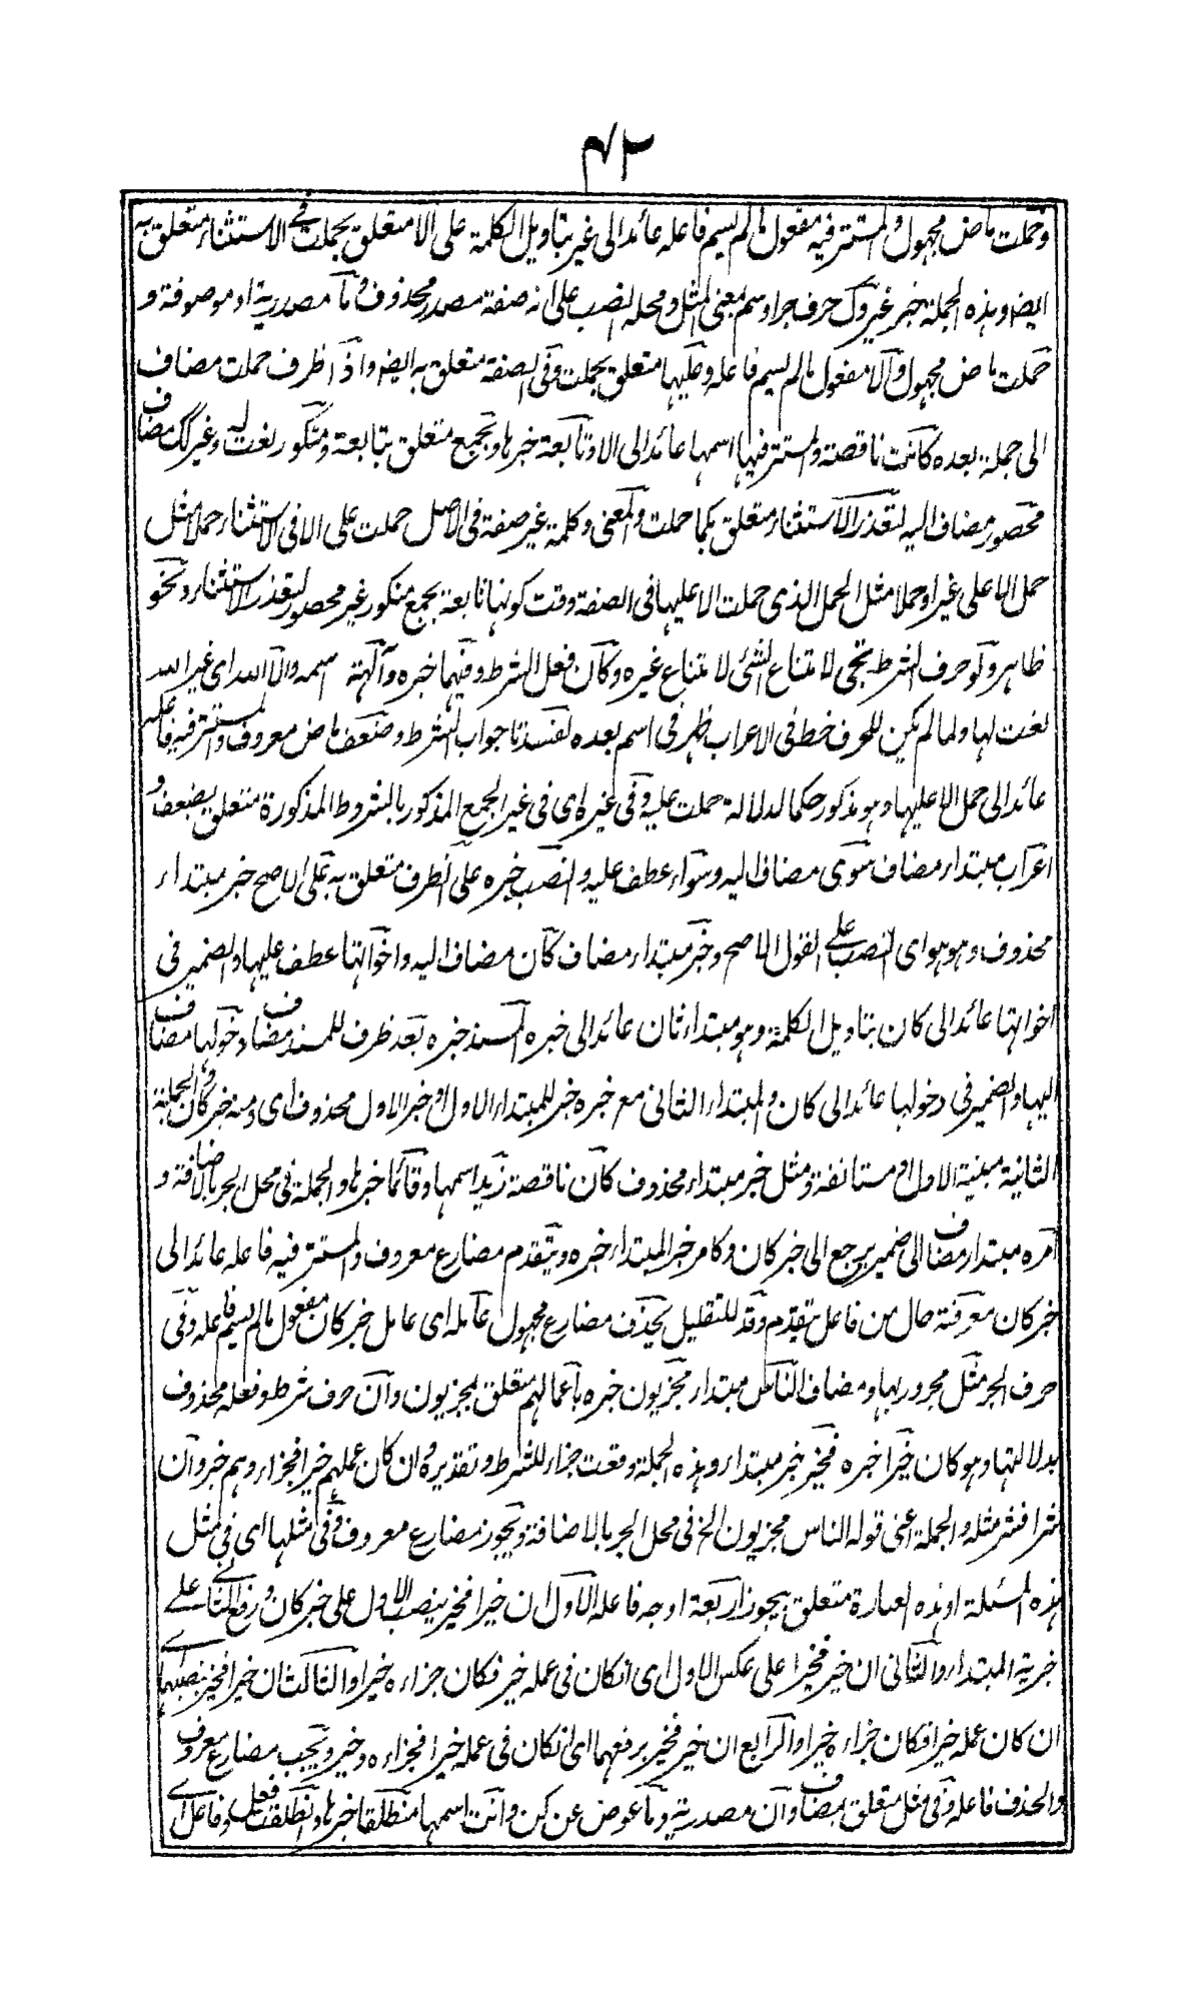 ٤٢
وحملت ماض مجهول والمستتر فيه مفعول مالم يسم فاعله عائد الى غير بتاويل الكلمة على الا متعلق بحملت فى الاستثناء متعلق به
ايضا وهذه الجملة خبر غير وك حرف جر او اسم بمعنى المثل ومحله النصب على انه صفة مصدر محذوف وما مصدرية او موصوفة و
حملت ماض مجهول والا مفعول مالم يسم فاعله وعليها متعلق بحملت وفى الصفة متعلق به ايضا واذا ظرف حملت مضاف
الى جملة بعده كانت ناقصة والمستتر فيها اسمها عائد الى الا وتابعة خبرها وبجمع متعلق بتابعة ومنكور نعت له وغير ك مضاف
محصور مضاف اليه لتعذر الاستثناء متعلق بكما حملت والمعنى وكلمة غير صفة فى الاصل حملت على الا فى الاستثناء حملا مثل
حمل الا على غير او حملا مثل الحمل الذى حملت الا عليها فى الصفة وقت كونها تابعة بجمع منكور غير محصور لتعذر الاستثناء ونحو
ظاهر ولو حرف الشرط تجى لامتناع الشئ لامتناع غيره وكان فعل الشرط وفيهما خبره وآلهة اسمه والا الله اى غير الله
نعت لها ولما لم يكن للحرف خط فى الاعراب ظهر فى اسم بعده لفسدتا جواب الشرط وضعف ماض معروف والمستتر فيه فاعله
عائد الى حمل الا عليها وهو مذكور حكما لدلالة حملت عليه وفى غيره اى فى غير الجمع المذكور بالشروط المذكورة متعلق بضعف و
اعراب مبتداء مضاف سوى مضاف اليه وسواء عطف عليه والنصب خبره على الظرف متعلق به على الاصح خبر مبتداء
محذوف وهو هو اى النصب على القول الاصح وخبر مبتداء مضاف كان مضاف اليه واخواتها عطف عليها والضمير فى
اخواتها عائد الى كان بتاويل الكلمة وهو مبتداء ثان عائد الى خبره المسند خبره بعد ظرف للمسند مضاف دخولها مضاف
اليها والضمير فى دخولها عائد الى كان والمبتداء الثانى مع خبره خبر للمبتداء الاول او خبر الاول محذوف اى ومنه خبر كان والجملة
الثانية مبنية الاول او مستانفة ومثل خبر مبتداء محذوف كان ناقصة زيد اسمها وقائما خبرها والجملة فى محل الجر بالاضافة و
امره مبتداء مضاف الى ضمير يرجع الى خبر كان وكامر خبر المبتداء خبره ويتقدم مضارع معروف والمستتر فيه فاعله عائد الى
خبر كان معرفة حال من فاعل يتقدم وقد للتقليل يحذف مضارع مجهول عامله اى عامل خبر كان مفعول مالم يسم فاعله وفى
حرف الجر مثل مجرور بها ومضاف الناس مبتداء مجزيون خبره باعمالهم متعلق بمجزيون وان حرف شرط وفعله محذوف
بدلالتها وهو كان خيرا خبره فخير خبر مبتداء وهذه الجملة وقعت جزاء للشرط وتقديره ان كان عملهم خيرا فجزاءهم خير وان
شرا فشر مثله والجملة اعنى قوله الناس مجزيون الخ فى محل الجر بالاضافة ويجوز مضارع معروف وفى مثلها اى فى مثل
هذه المسئلة او هذه العبارة متعلق بيجوز اربعة اوجه فاعله الاول ان خيرا فخير بنصب الاول على خبر كان ورفع الثانى على
خبرية المبتداء والثانى ان خير فخيرا على عكس الاول اى ان كان فى عمله خير فكان جزاءه خيرا والثالث ان خيرا فخيرا بنصبهما اى
ان كان عمله خيرا فكان جزاءه خيرا والرابع ان خير فخير برفعهما اى ان كان فى عمله خير فجزاءه خير ويجب مضارع معروف
والحذف فاعله وفى مثل متعلق مضاف وان مصدرية وما عوض عن كن وانت اسمها منطلقا خبرها وانطلقت فعل وفاعل اى